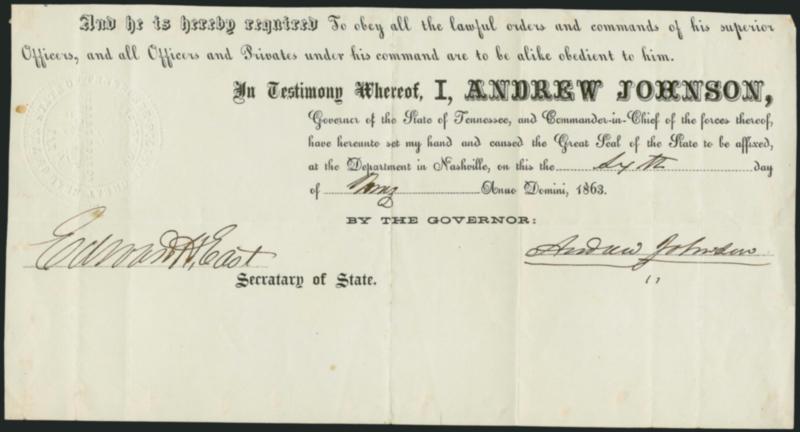 And he is hereby required To obey all the lawful orders and commands of his superior
Officers, and all Officers and Privates under his command are to be alike obedient to him.
In Testimony Whereof, I, ANDREW JOHNSON,
Governor of the State of Tennessee, and Commander-in-Chief of the forces thereof,
have hereunto set my hand and caused the Great Seal of the State to be affixed,
at the Department in Nashville, on this the Sixth day
of Anno Domini, 1863.
BY THE GOVERNOR:
Edward H. East
Andrew Johnson
Secratary of State.